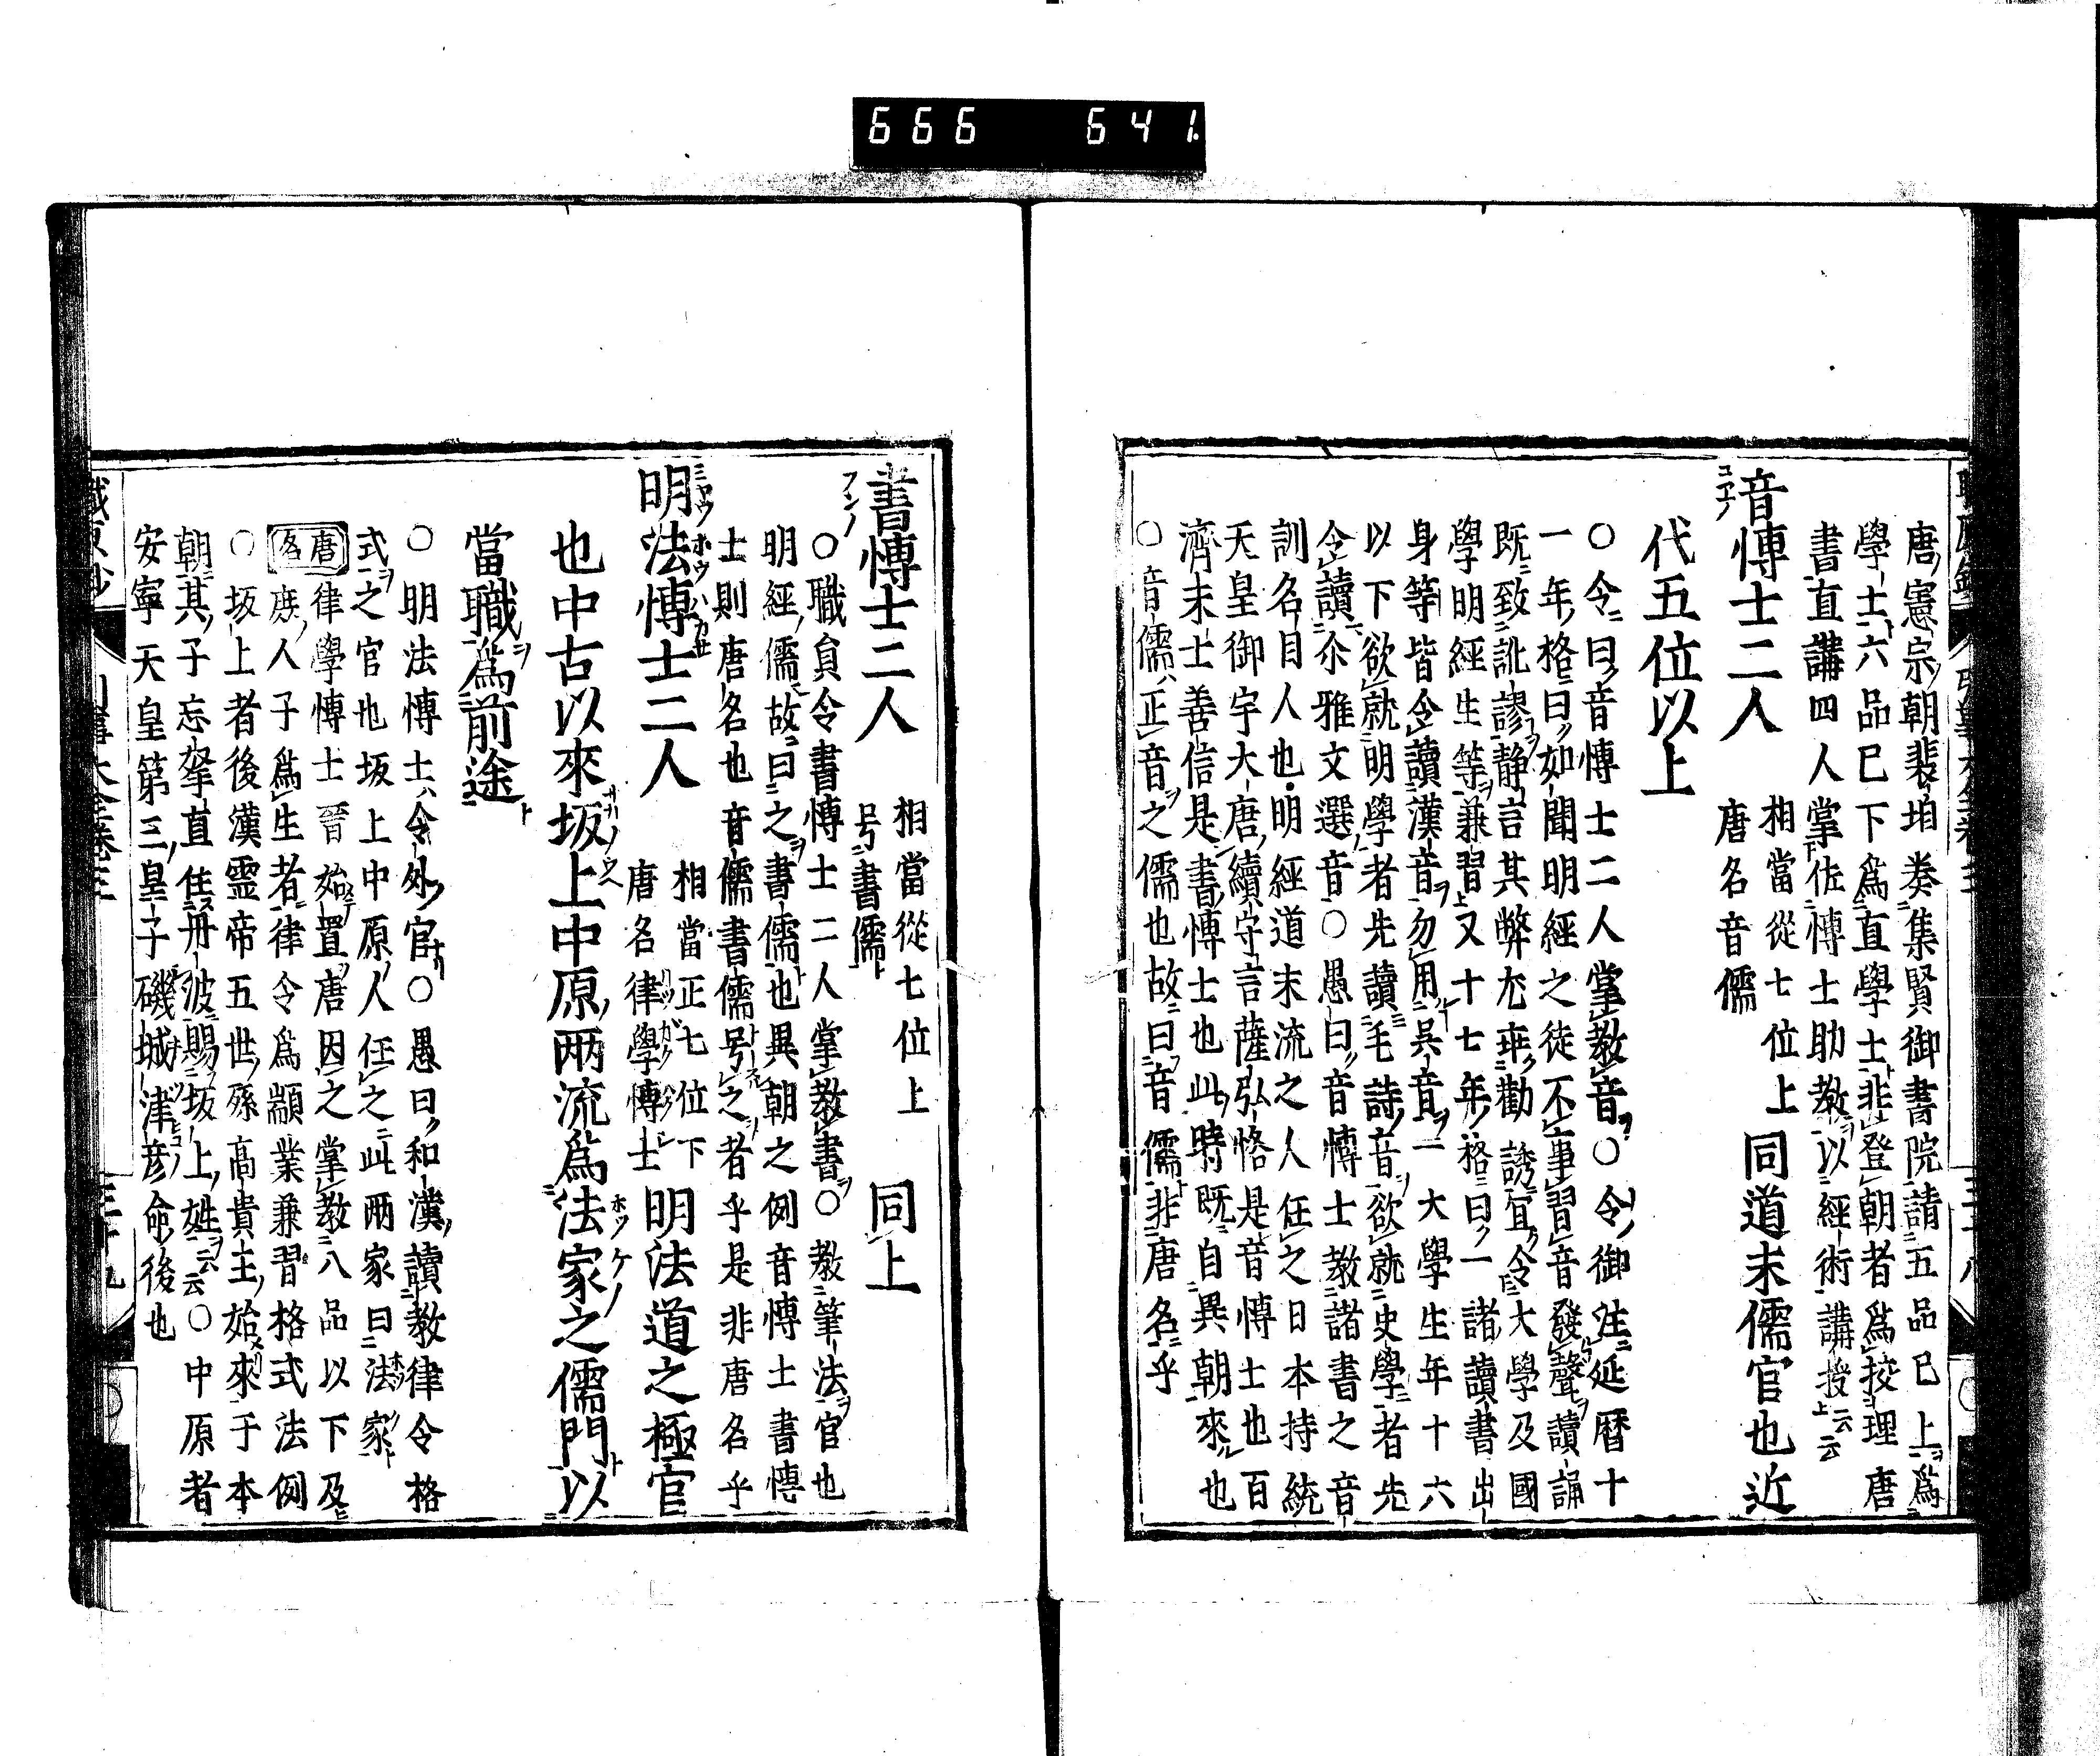 666 641
唐憲宗朝裴垍奏集賢御書院請五品已上爲
學士六品已下爲直學士非登朝者爲挍理唐
書直講四人掌佐博士助教以經術講授云云
音博士二人 相當從七位上 唐名音儒 同道末儒官也近
代五位以上
○令曰音博士二人掌教音○令御注延暦十
一年格曰如聞明經之徒不事習音發聲讀誦
既致訛謬静言其弊尤乖勸誘宜令大學及國
學明經生等兼習又十七年格曰一諸讀書出
身等皆令讀漢音勿用呉音一大學生年十六
以下欲就明學者先讀毛詩音欲就史學者先
令讀尒雅文選音○愚曰音博士教諸書之音
訓名目人也明經道末流之人任之日本持統
天皇御宇大唐續守言薩弘恪是音博士也百
濟末士善信是書博士也此時既自異朝來也
○音儒正音之儒也故曰音儒非唐名乎
書博士二人 相當從七位上 号書儒 同上
○職員令書博士二人掌教書○教筆法官也
明經儒故曰之書儒也異朝之例音博士書博
士則唐名也音儒書儒号之者乎是非唐名乎
明法博士二人 相當正七位下 唐名律學博士 明法道之極官
也中古以來坂上中原兩流爲法家之儒門以
當職爲前途
○明法博士令外官○愚曰和漢讀教律令格
式之官也坂上中原人任之此兩家曰法家
唐名 律學博士晉始置唐因之掌教八品以下及
庶人子爲生者律令爲顓業兼習格式法例
○坂上者後漢靈帝五世孫高貴主始來于本
朝其子忘拏直住丹波賜坂上姓云云○中原者
安寧天皇第三皇子磯城津彦命後也